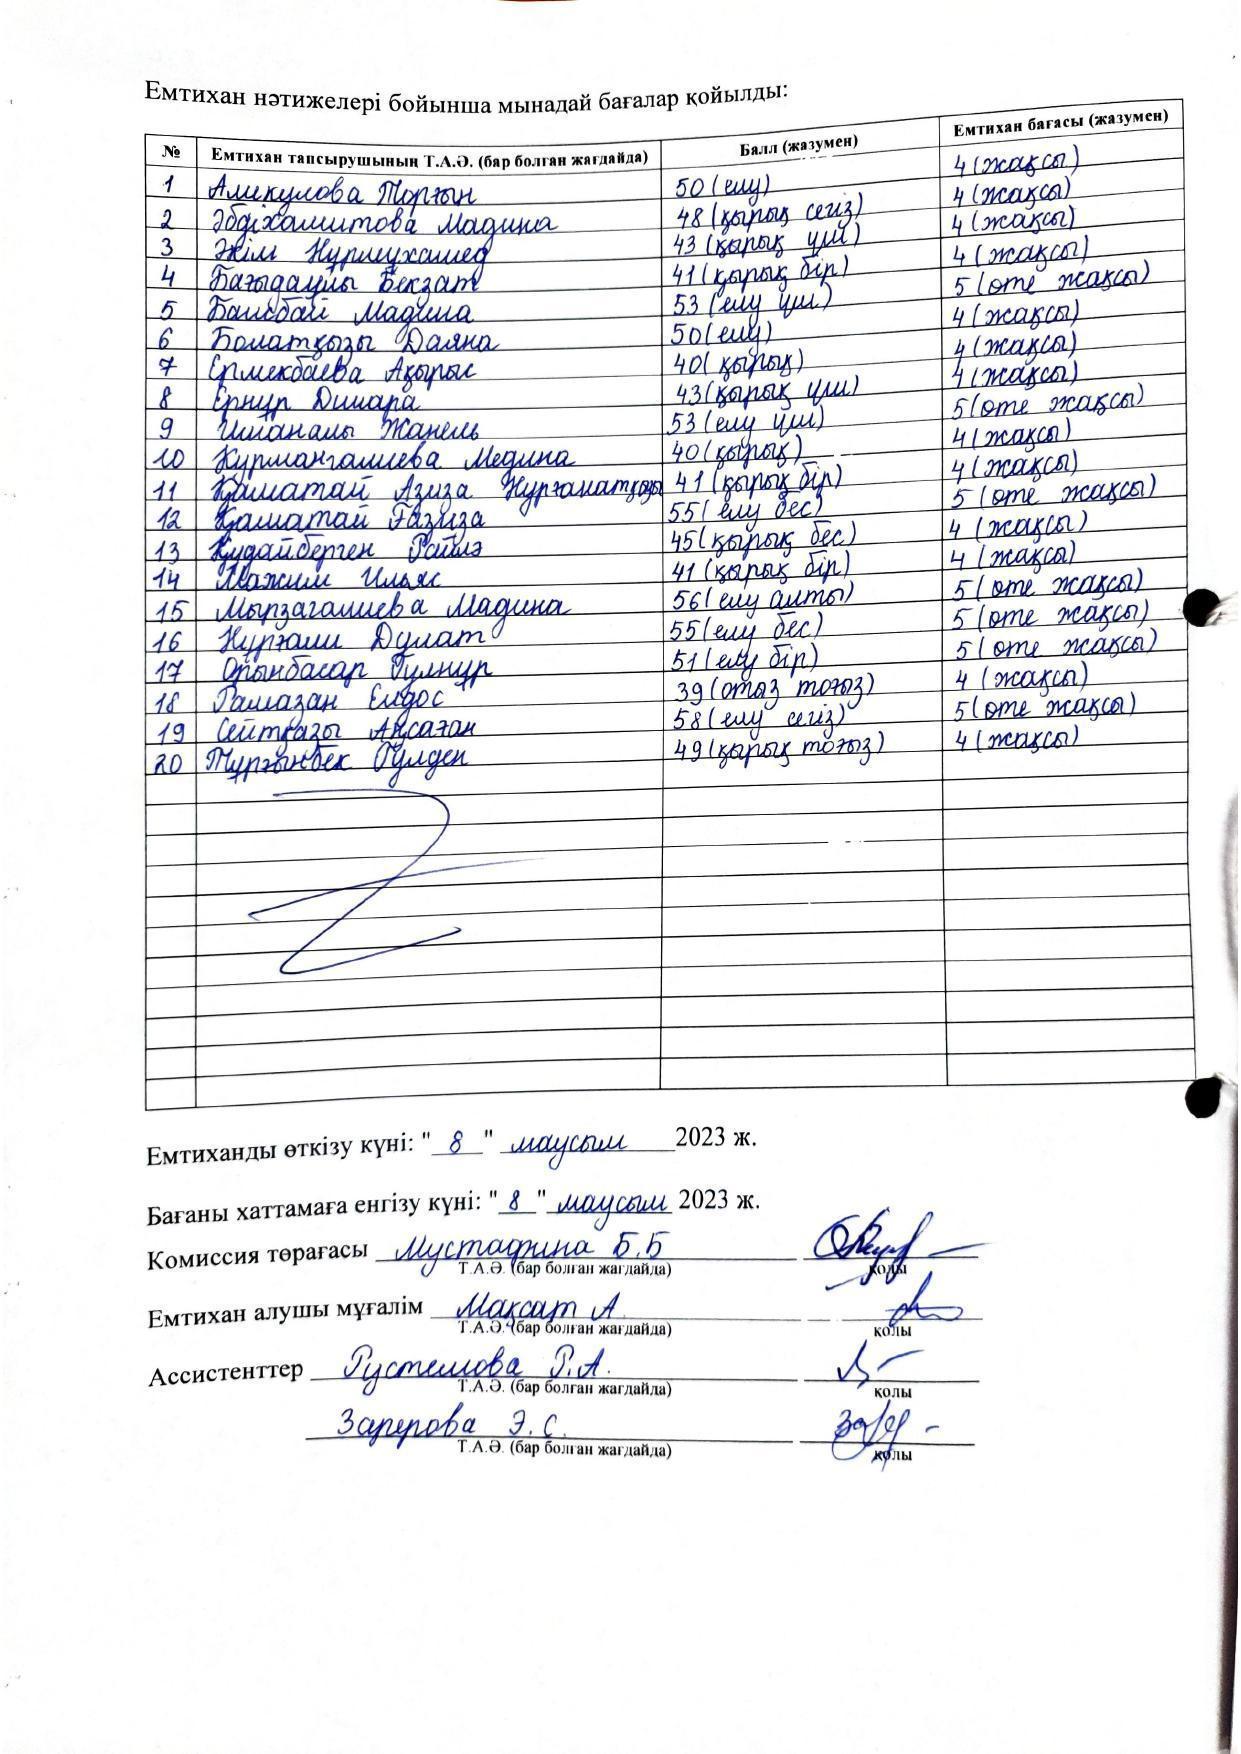 Емтихан нәтижелері бойынша мынадай бағалар қойылды:
№ Емтихан тапсырушының Т.А.Ә. (бар болған жағдайда) Балл (жазумен) Емтихан бағасы (жазумен)
1 Аликулова Торғын 50 (елу) 4 (жақсы)
2 Әбдіхамитова Мадина 48 (қырық сегіз) 4 (жақсы)
3 Әкім Нұрмухамед 43 (қырық үш) 4 (жақсы)
4 Бағыдаулы Бекзат 41 (қырық бір) 4 (жақсы)
5 Баисбай Мадина 53 (елу үш) 5 (өте жақсы)
6 Болатқызы Даяна 50 (елу) 4 (жақсы)
7 Ермекбаева Ақырыс 40 (қырық) 4 (жақсы)
8 Ернұр Динара 43 (қырық үш) 4 (жақсы)
9 Иманалы Жанель 53 (елу үш) 5 (өте жақсы)
10 Курмангалиева Медина 40 (қырық) 4 (жақсы)
11 Қаматай Азиза Нұрғанатқызы 41 (қырық бір) 4 (жақсы)
12 Қаматай Ғазиза 55 (елу бес) 5 (өте жақсы)
13 Құдайберген 45 (қырық бес) 4 (жақсы)
14 Мажим Ильяс 41 (қырық бір) 4 (жақсы)
15 Мырзагалиева Мадина 56 (елу алты) 5 (өте жақсы)
16 Нұрғали Дулат 55 (елу бес) 5 (өте жақсы)
17 Орынбасар Гүлнұр 51 (елу бір) 5 (өте жақсы)
18 Рамазан Елдос 39 (отыз тоғыз) 4 (жақсы)
19 Сейтқазы Ақсаған 58 (елу сегіз) 5 (өте жақсы)
20 Тұрғынбек Гүлден 49 (қырық тоғыз) 4 (жақсы)
Емтиханды өткізу күні: "8" маусым 2023 ж.
Бағаны хаттамаға енгізу күні: "8" маусым 2023 ж.
Комиссия төрағасы Мустафина Б.Б
Т.А.Ә. (бар болған жағдайда) қолы
Емтихан алушы мұғалім Мақсат А.
Т.А.Ә. (бар болған жағдайда) қолы
Ассистенттер Рүстемова Р.А.
Т.А.Ә. (бар болған жағдайда) қолы
Э.С.
Т.А.Ә. (бар болған жағдайда) қолы